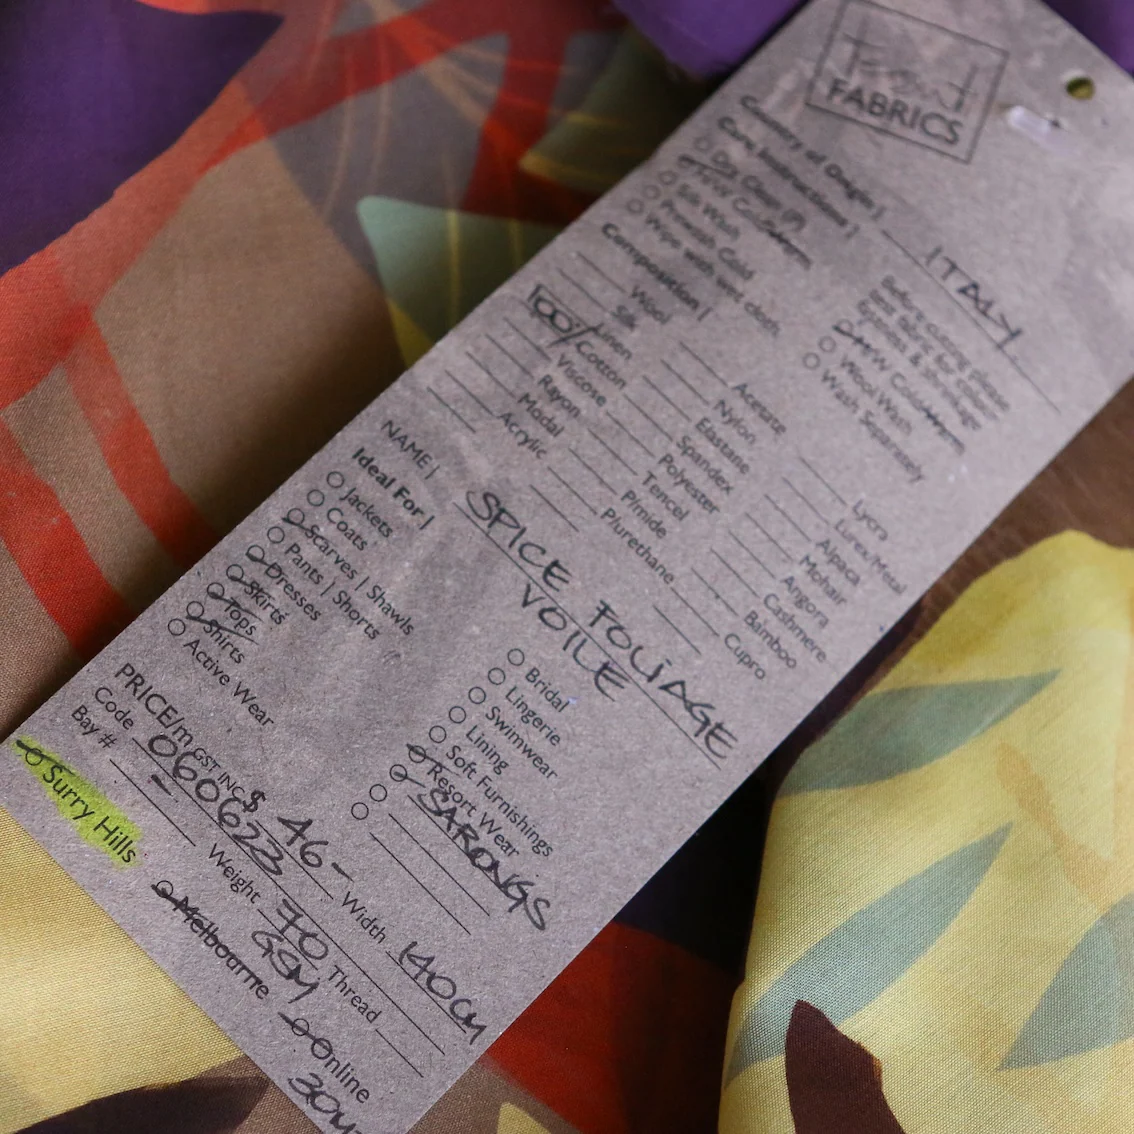 FABRICS
Country of Origin | ITALY
Care Instructions |
Dry Clean (P)
Silk Wash
Prewash Cold
Wipe with wet cloth
Before cutting please
test fabric for colour
fastness & shrinkage
Wool Wash
Wash Separately
Composition |
Wool
Silk
Linen
100% Cotton
Viscose
Rayon
Modal
Acrylic
Acetate
Nylon
Elastane
Spandex
Polyester
Tencel
Pimide
Plurethane
Lycra
Lurex/Metal
Alpaca
Mohair
Angora
Cashmere
Bamboo
Cupro
NAME | SPICE FOLIAGE
VOILE
Ideal For |
Jackets
Coats
Scarves | Shawls
Pants | Shorts
Dresses
Skirts
Tops
Shirts
Active Wear
Bridal
Lingerie
Swimwear
Lining
Soft Furnishings
Resort Wear
SARONGS
PRICE/m GST INC $ 46- Width 140CM
Code 060623 Weight 70 GSM Thread
Bay # -
Surry Hills
Melbourne
Online